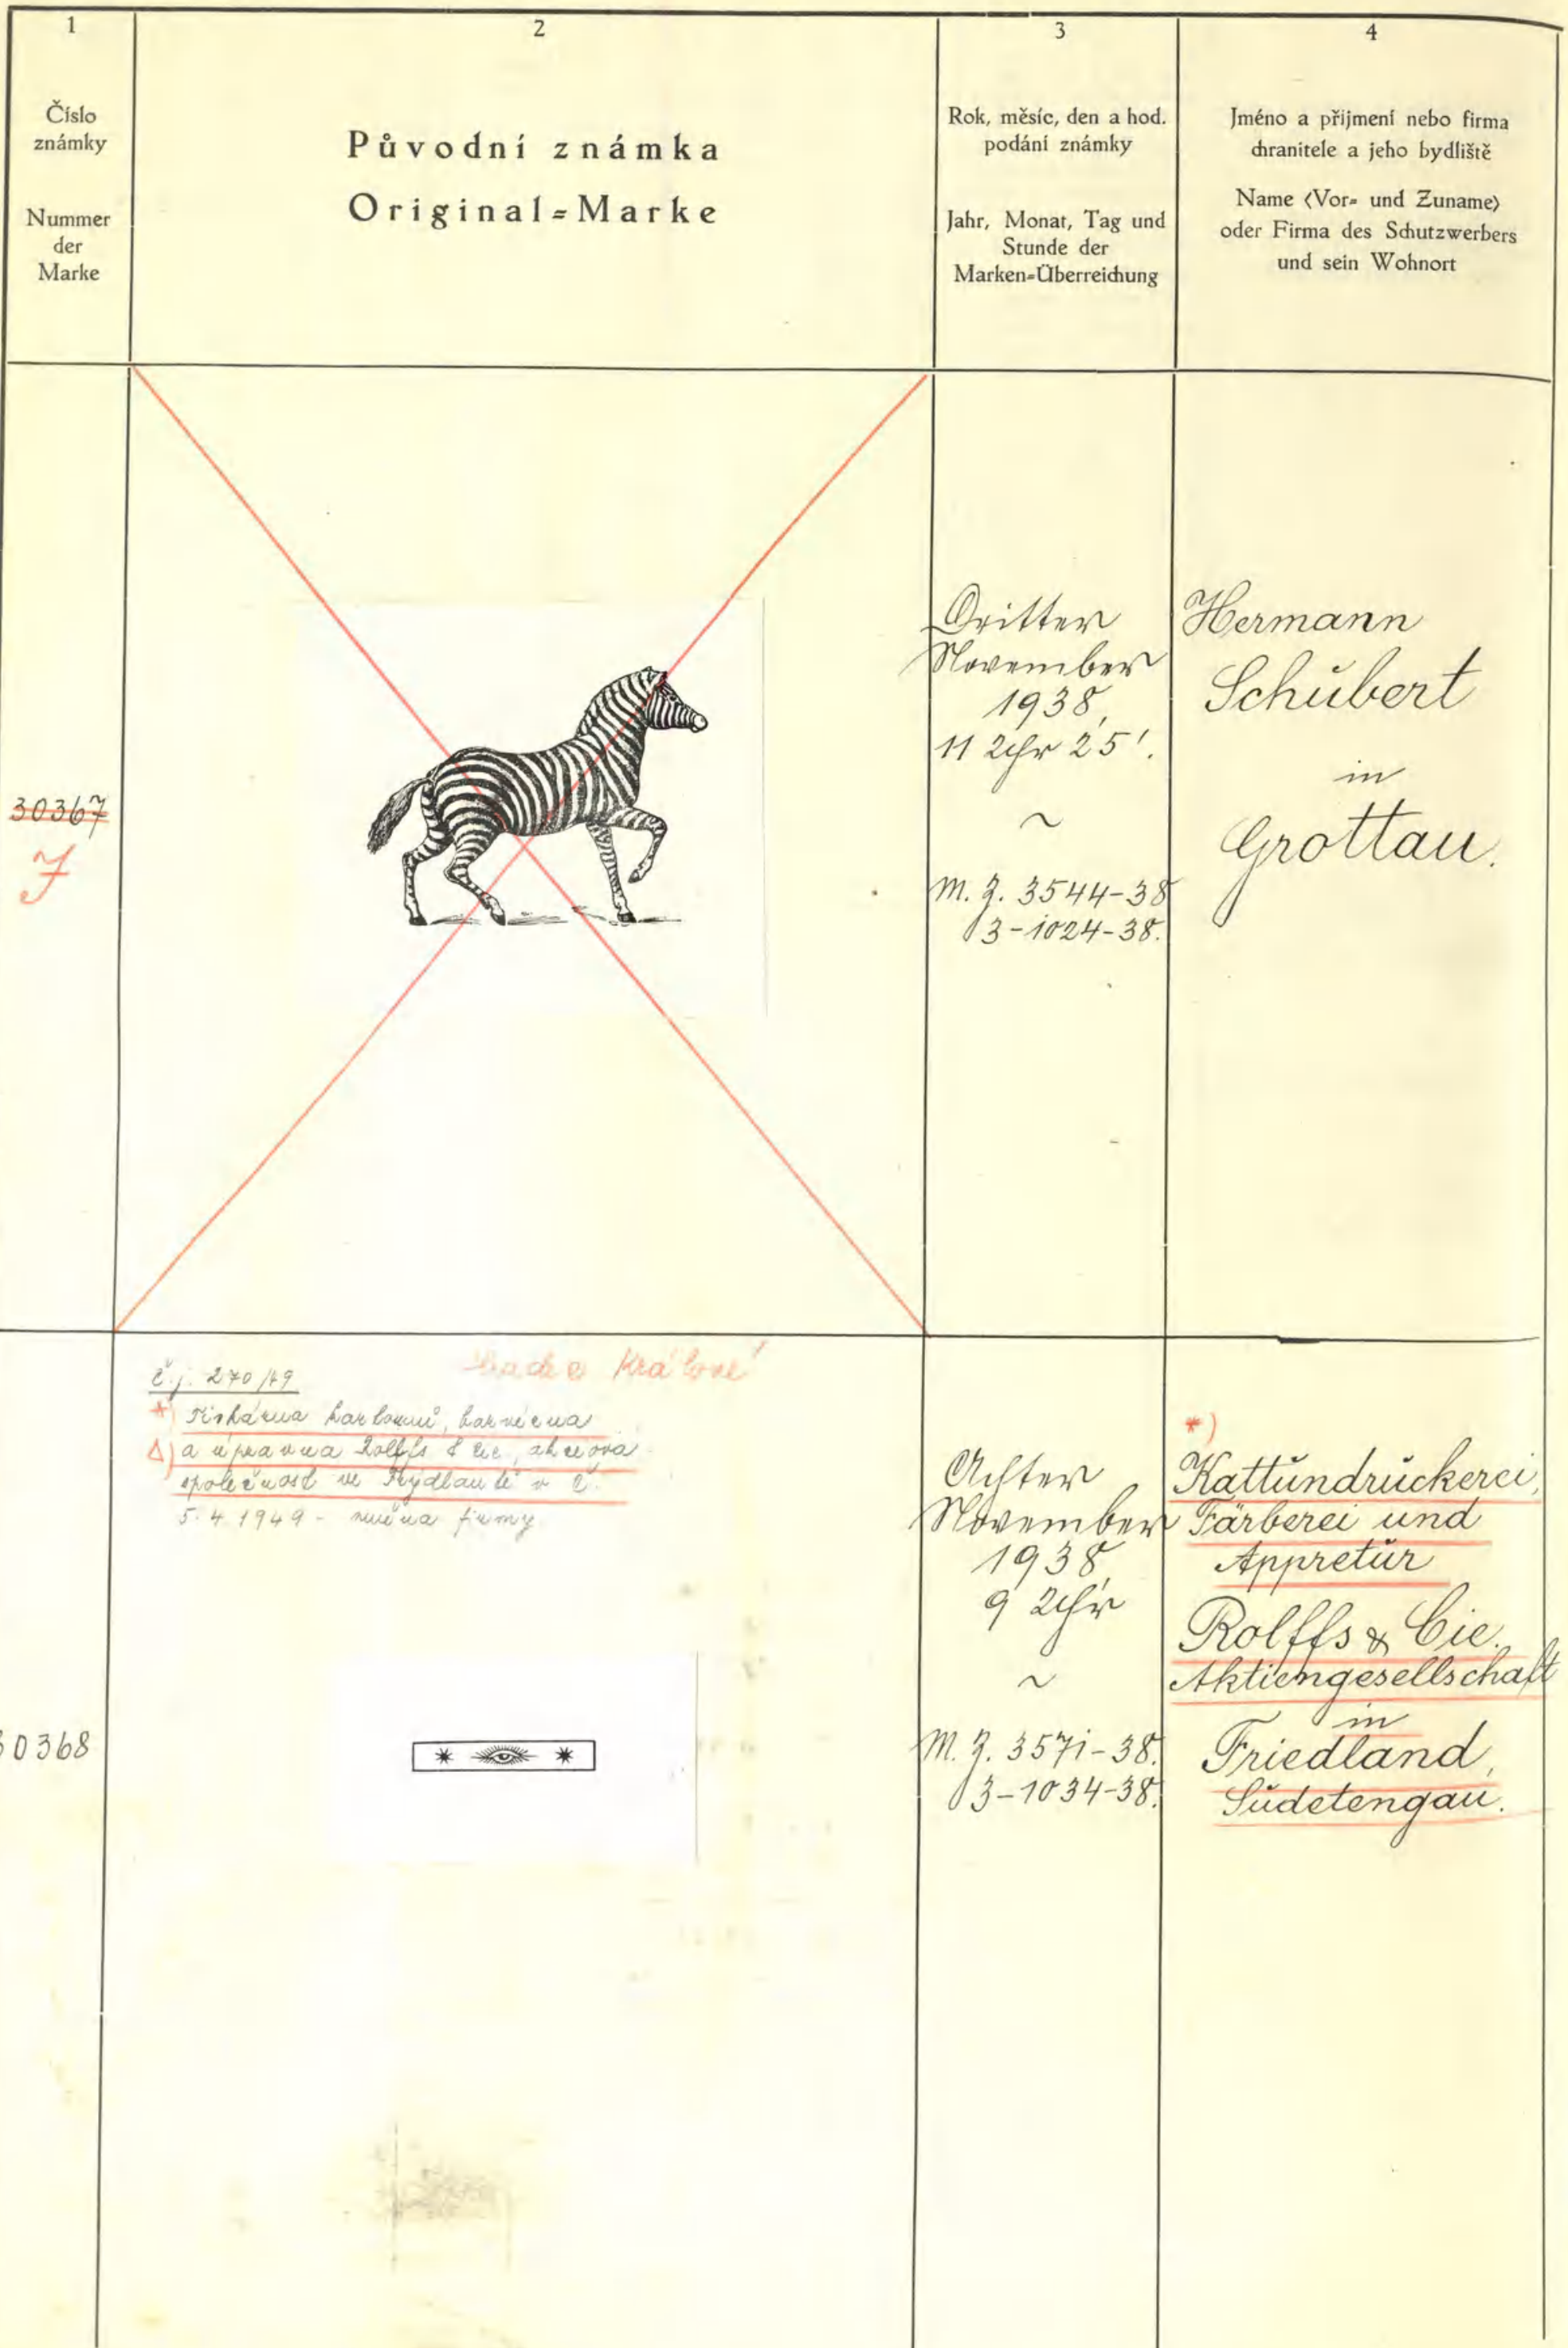 1
Číslo
známky
Nummer
der
Marke
2
Původní známka
Original=Marke
3
Rok, měsíc, den a hod.
podání známky
Jahr, Monat, Tag und
Stunde der
Marken=Überreichung
4
Jméno a přijmení nebo firma
chranitele a jeho bydliště
Name (Vor= und Zuname)
oder Firma des Schutzwerbers
und sein Wohnort
30367
Dritter
November
1938,
11 Uhr 25'.
~
M. Z. 3544-38
3-1024-38.
Hermann
Schubert
in
Grottau.
30368
č.j. 270/49
Hradec Králové
*) Tiskárna kartounů, barvírna
Δ) a úpravna Rolffs & Cie, akciová
společnost ve Frýdlantě v Č.
5. 4. 1949 - změna firmy
Achter
November
1938,
9 Uhr
~
M. Z. 3571-38.
3-1034-38.
*)
Kattundruckerei,
Färberei und
Appretur
Rolffs & Cie.
Aktiengesellschaft
in
Friedland,
Sudetengau.